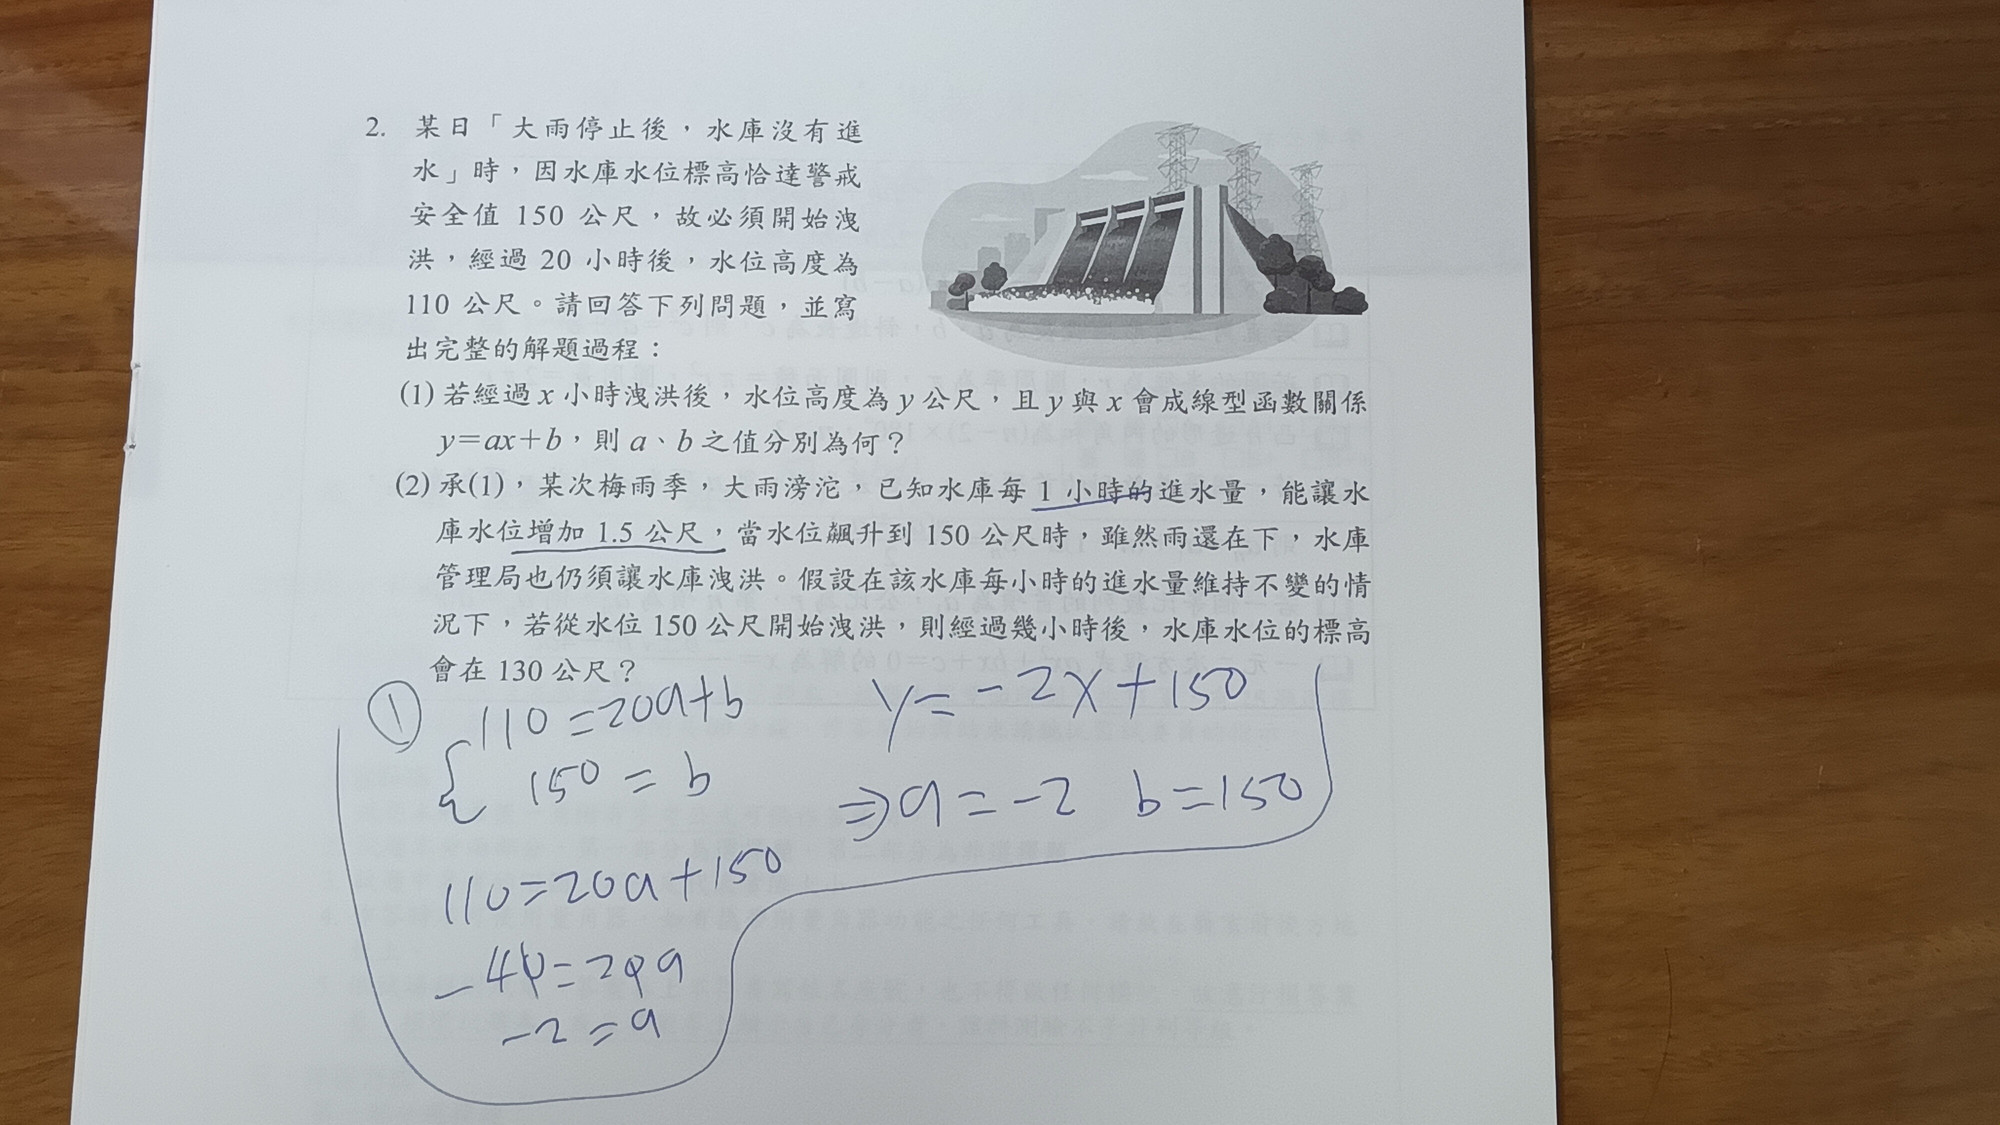 2. 某日「大雨停止後，水庫沒有進
水」時，因水庫水位標高恰達警戒
安全值 150 公尺，故必須開始洩
洪，經過 20 小時後，水位高度為
110 公尺。請回答下列問題，並寫
出完整的解題過程：
(1) 若經過 x 小時洩洪後，水位高度為 y 公尺，且 y 與 x 會成線型函數關係
y=ax+b，則 a、b 之值分別為何？
(2) 承(1)，某次梅雨季，大雨滂沱，已知水庫每 1 小時的進水量，能讓水
庫水位增加 1.5 公尺，當水位飆升到 150 公尺時，雖然雨還在下，水庫
管理局也仍須讓水庫洩洪。假設在該水庫每小時的進水量維持不變的情
況下，若從水位 150 公尺開始洩洪，則經過幾小時後，水庫水位的標高
會在 130 公尺？
① { 110=20a+b
150=b
110=20a+150
-40=20a
-2=a
y=-2x+150
⇒a=-2 b=150